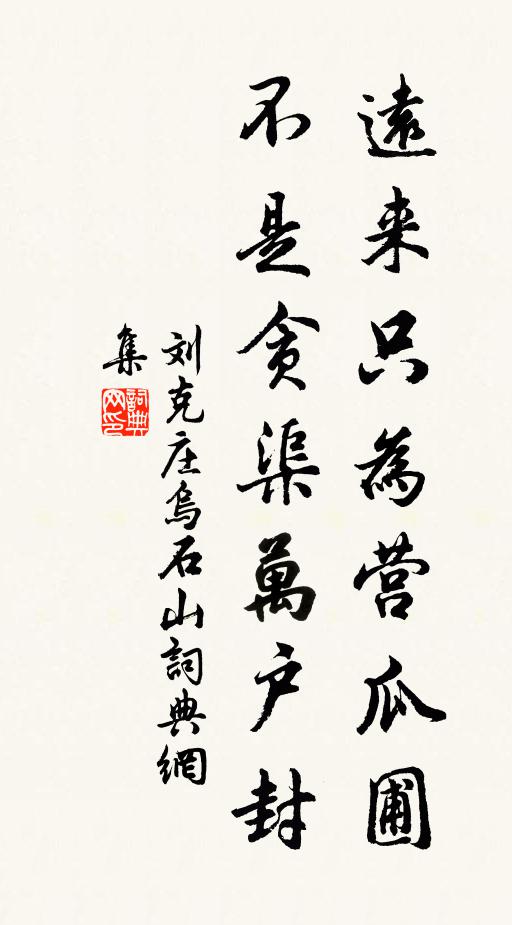 遠来只為营瓜圃
不是貪渠萬户封
刘克庄烏石山詞典網
集
詞典网印